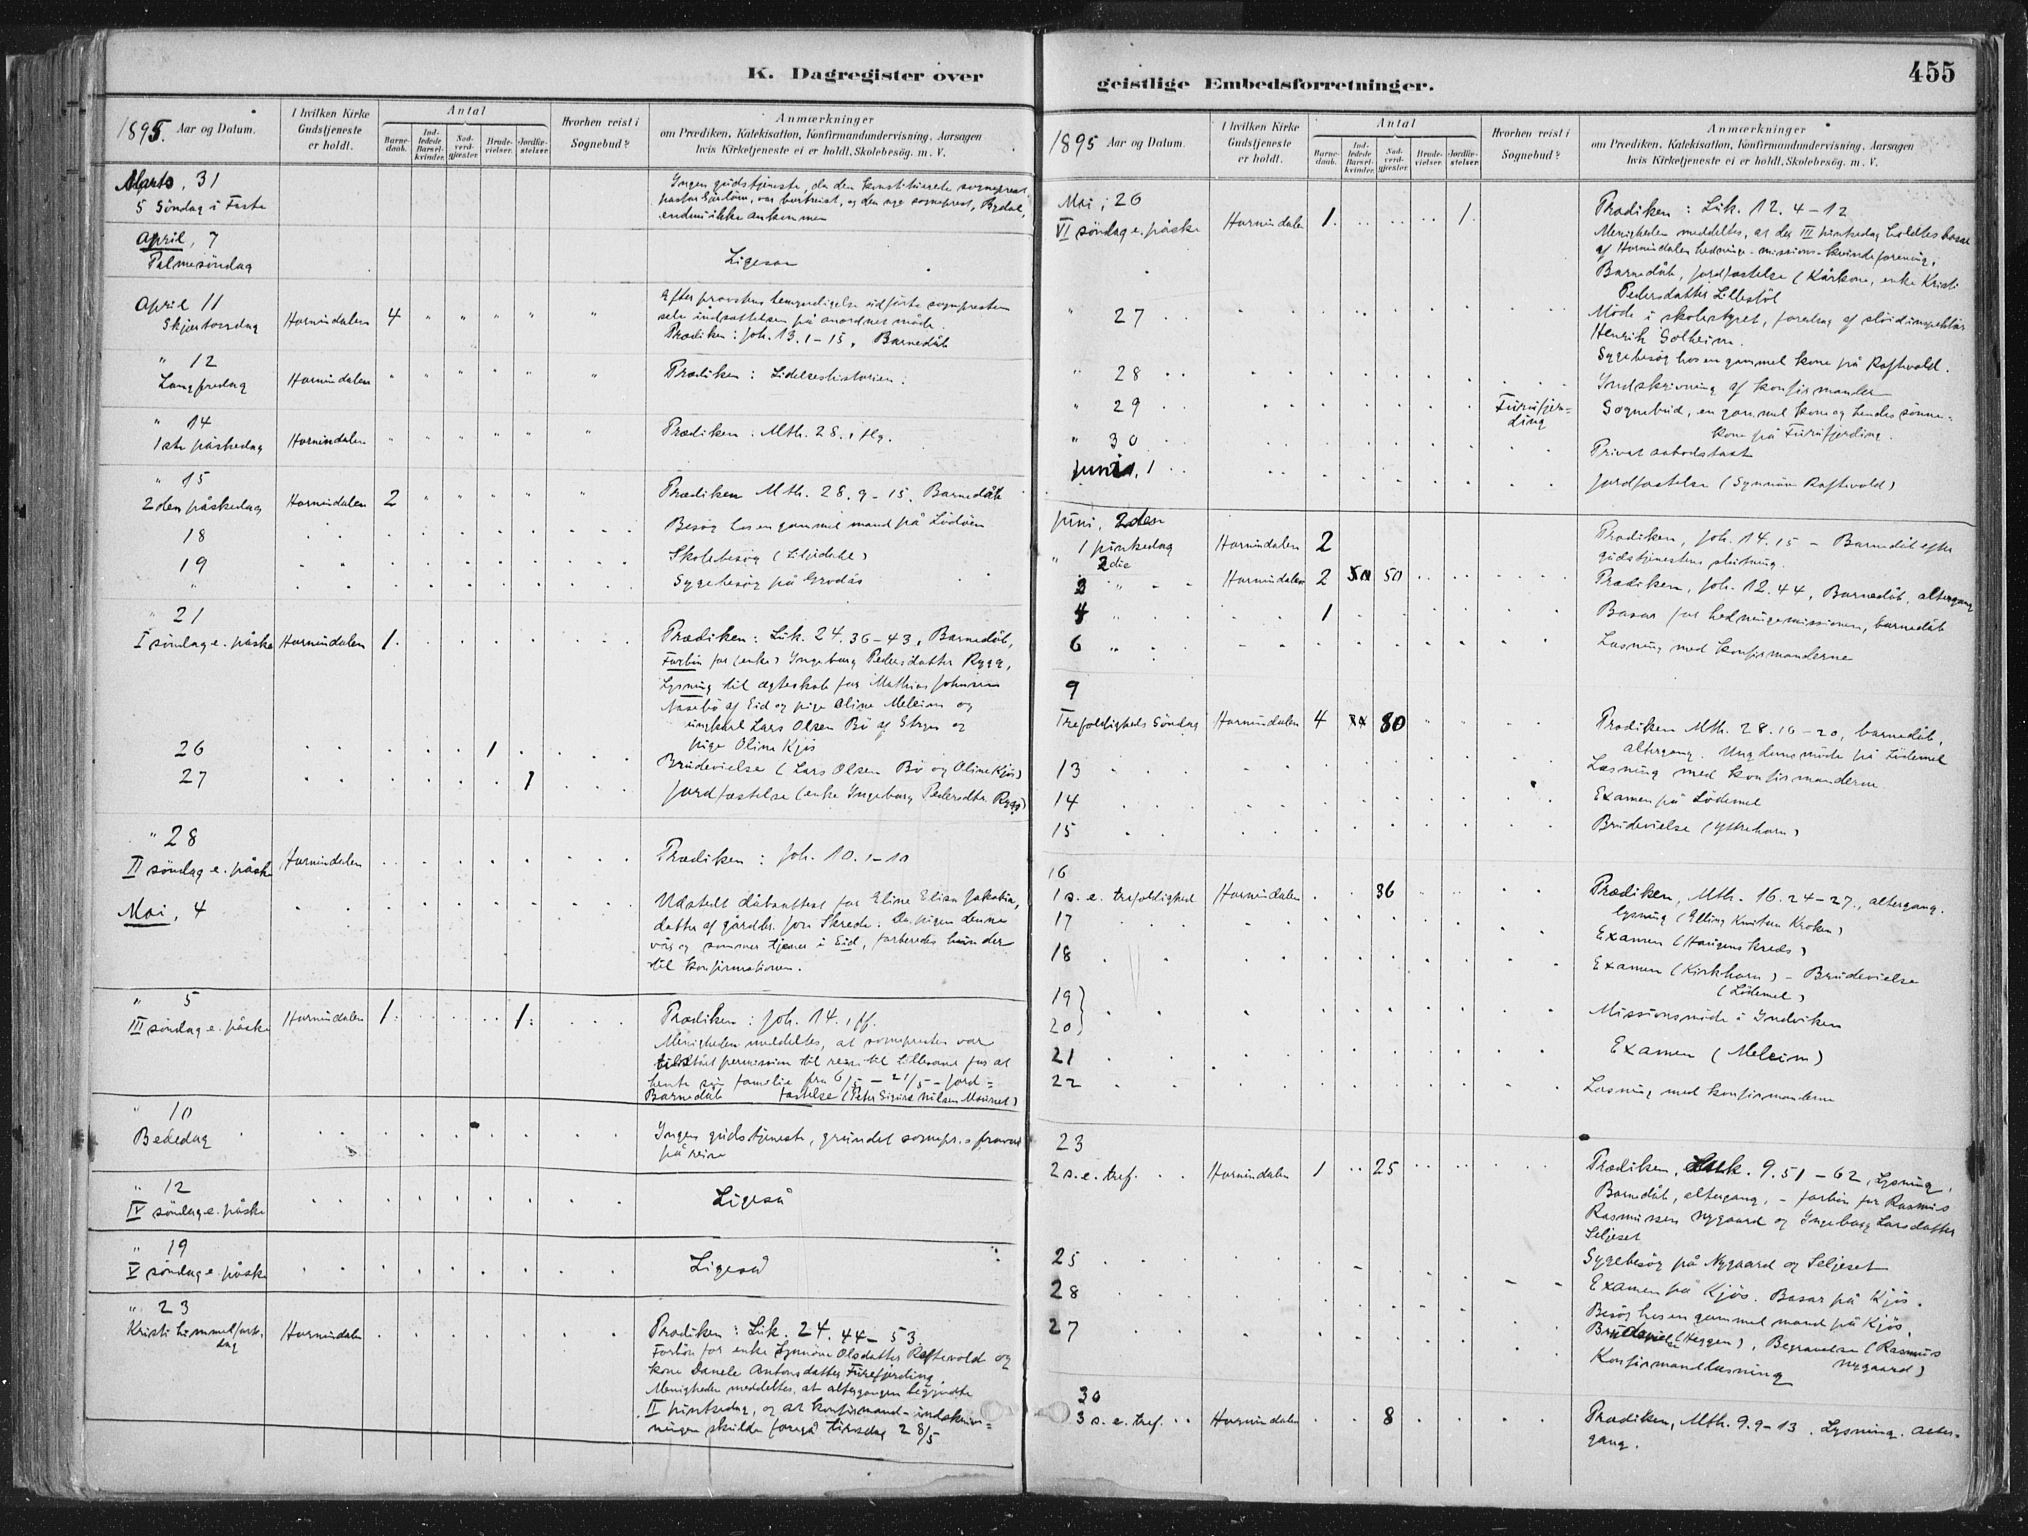 K. Dagregister over
1895. Aar og Datum.
I hvilken Kirke Gudstjeneste er holdt.
Antal
Barnedaab.
Indledede Barselkvinder.
Nadverdgjæster
Brudevielser.
Jordfæstelser
Hvorhen reist i Sognebud?
Anmærkninger
om Prædiken, Katekisation, Konfirmandundervisning, Aarsagen
hvis Kirketjeneste ei er holdt, Skolebesøg. m. V.
Marts, 31
5 Søndag i Faste
Ingen gudstjeneste, da den konstituerede sogneprest,
var bortreist, og den nye sogneprest,
endnu ikke ankommen
April, 7
Palmesøndag
Ligesaa
April 11
Skjærtorsdag Hornindalen 4 " " " " "
Efter provstens bemyndigelse udførte sognepresten
selv indsættelsen på anordnet måde.
Prædiken: Joh. 13. 1-15, Barnedåb
" 12
Langfredag Hornindalen " " " " " "
Prædiken: Lidelseshistorien.
" 14
1ste påskedag Hornindalen " " " " " "
Prædiken: Mth. 28. 1 flg.
" 15
2den påskedag Hornindalen 2 " " " " "
Prædiken Mth. 28. 9-15. Barnedåb
18 Besøg hos en gammel mand på Lødøen
19 Skolebesøg (Liljedahl)
" Sygebesøg på Grodås
" 21
I søndag e. påske Hornindalen 1.
Prædiken: Luk. 24. 36-43, Barnedåb,
Forbøn for (enke) Ingeborg Pedersdatter Rygg,
Lysning til ægteskab for Mathias Johnsen
af Eid og pige Oline Meleim og
ungkarl Lars Olsen Bø af Stryn og
pige Oline Kjøs
26 1 Brudevielse (Lars Olsen Bø og Oline Kjøs)
27 1 Jordfæstelse (enke Ingeborg Pedersdtr. Rygg)
" 28
II søndag e. påske Hornindalen
Prædiken: Joh. 10. 1-10
Mai, 4
Udstedt dåbsattest for Eline Elisa Jakobia,
datter af gårdbr. Jon Skrede. Da pigen denne
vår og sommer tjener i Eid, forberedes hun der
til konfirmationen.
" 5
III søndag e. påske Hornindalen 1. 1.
Prædiken: Joh. 14. 1 ff.
Menigheden meddeltes, at sognepresten var
tilstået permission til reise til Lillesand for at
hente sin familie fra 6/5 - 21/5 - Jord=
Barnedåb fæstelse (Peter Sigurd Nilsen Maurset)
" 10
Bededag
Ingen gudstjeneste, grundet sognepr.s fravær
på reise
" 12
IV søndag e. påske
Ligeså
" 19
V søndag e. påske
Ligeså
" 23
Kristi himmelfarts-
dag Hornindalen
Prædiken: Luk. 24. 44-53
Forbøn for enke Synnøve Olsdatter Raftevold og
kone Danele Antonsdatter Furefjerding.
Menigheden meddeltes, at altergangen begyndte
II pinkedag, og at konfirmand-indskriv=
ningen skulde foregå tirsdag 28/5
geistlige Embedsforretninger.
455
1895 Aar og Datum.
I hvilken Kirke Gudstjeneste er holdt.
Antal
Barnedaab.
Indledede Barselkvinder.
Nadverdgjæster
Brudevielser.
Jordfæstelser.
Hvorhen reist i Sognebud?
Anmærkninger
om Prædiken, Katekisation, Konfirmandundervisning, Aarsagen
hvis Kirketjeneste ei er holdt, Skolebesøg. m. V.
Mai, 26
VI søndag e. påske Hornindalen 1. 1.
Prædiken: Luk. 12. 4-12
Menigheden meddeltes, at der III pinkedag holdtes basar
af Hornindalen hedninge-missions-kvindeforening.
Barnedåb, jordfæstelse (Kårkone, enke Kristi
Pedersdatter Lillestøl
" 27
Møde i skolestyret, foredrag af sløidinspektør
Henrik Solheim.
Sygebesøg hos en gammel kone på Raftevold.
" 28
Indskrivning af konfirmander
" 29
Furufjer=
ding
Sognebud, en gammel kone og hendes sønne=
kone på Furufjerding.
" 30
Privat
Juni, 1
Jordfæstelse (Synnøve Raftevold)
Juni, 2den
1 pinkedag Hornindalen 2
Prædiken, Joh. 14. 15 - Barnedåb efter
gudstjenestens slutning.
" 2die
3 " Hornindalen 2 50
Prædiken, Joh. 12. 44, Barnedåb, altergang
4 " 1
Basar for hedningemissionen, barnedåb
6 "
Læsning med konfirmanderne
9
Trefoldigheds Søndag Hornindalen 4 80
Prædiken Mth. 28. 16-20, barnedåb,
altergang. Ungdomsmøde på Lødemel
13 Læsning med konfirmanderne
14 Examen på Lødemel
15 Brudevielse (Ytrehorn)
16
1 s. e. trefoldighed Hornindalen 36
Prædiken, Mth. 16. 24-27., altergang.
lysning (Elling Knutsen Kroken)
17 Examen (Haugens kreds)
18 Examen (Kirkhorn) - Brudevielse
(Lødemel)
19}
20} Missionsmøde i Indviken
21 Examen (Meleim)
22 Læsning med konfirmanderne
23
2 s. e. tref. Hornindalen 1 25
Prædiken, Luk. 9. 51-62, Lysning,
Barnedåb, altergang, - forbøn for Rasmus
Rasmussen Nygaard og Ingeborg Larsdatter
Seljeset
25 Sygebesøg på Nygaard og Seljeset
28 Examen på Kjøs. Basar på Kjøs.
Besøg hos en gammel mand på Kjøs.
27 Brudevielse (Heggen), Begravelse (Rasmus
Nygaard)
Konfirmandlæsning
30
3 s. e. tref. Hornindalen 8
Prædiken, Mth. 9. 9-13. Lysning. Alter=
gang.